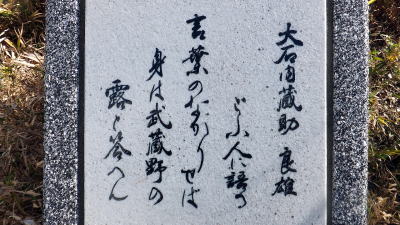 大石内蔵助 良雄
とふ人に語る
言葉のなかりせば
身は武蔵野の
露と答へん